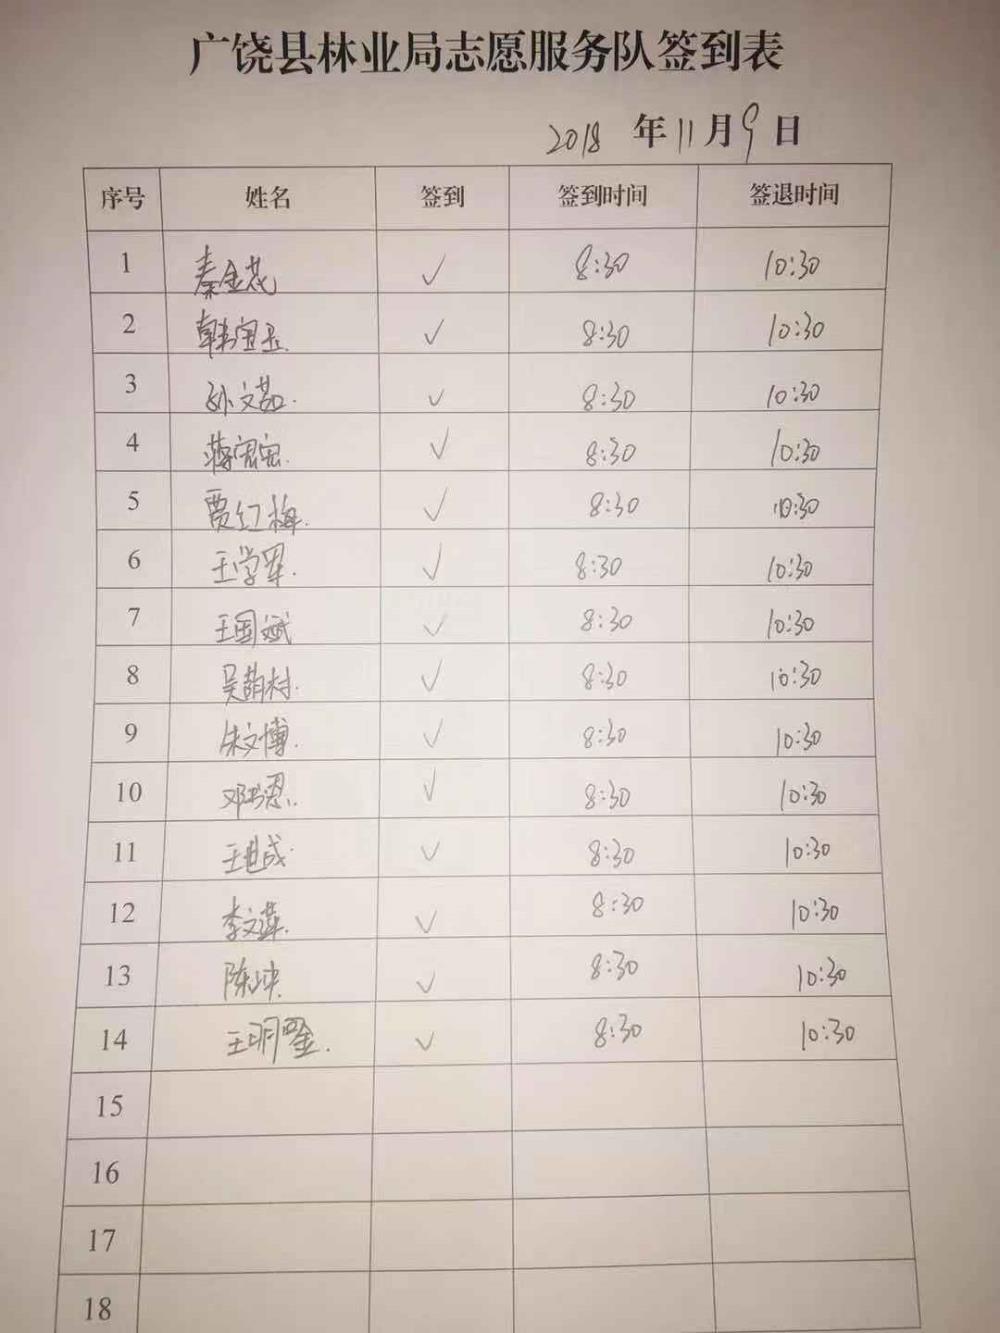 广饶县林业局志愿服务队签到表
2018 年 11 月 9 日
序号 姓名 签到 签到时间 签退时间
1 秦金花 ✓ 8:30 10:30
2 韩宝玉 ✓ 8:30 10:30
3 孙文茹 ✓ 8:30 10:30
4 蒋宝宝 ✓ 8:30 10:30
5 贾红梅 ✓ 8:30 10:30
6 王学军 ✓ 8:30 10:30
7 王国斌 ✓ 8:30 10:30
8 吴 村 ✓ 8:30 10:30
9 朱文博 ✓ 8:30 10:30
10 邓书恩 ✓ 8:30 10:30
11 王世成 ✓ 8:30 10:30
12 李文萍 ✓ 8:30 10:30
13 陈坤 ✓ 8:30 10:30
14 王玥 ✓ 8:30 10:30
15
16
17
18